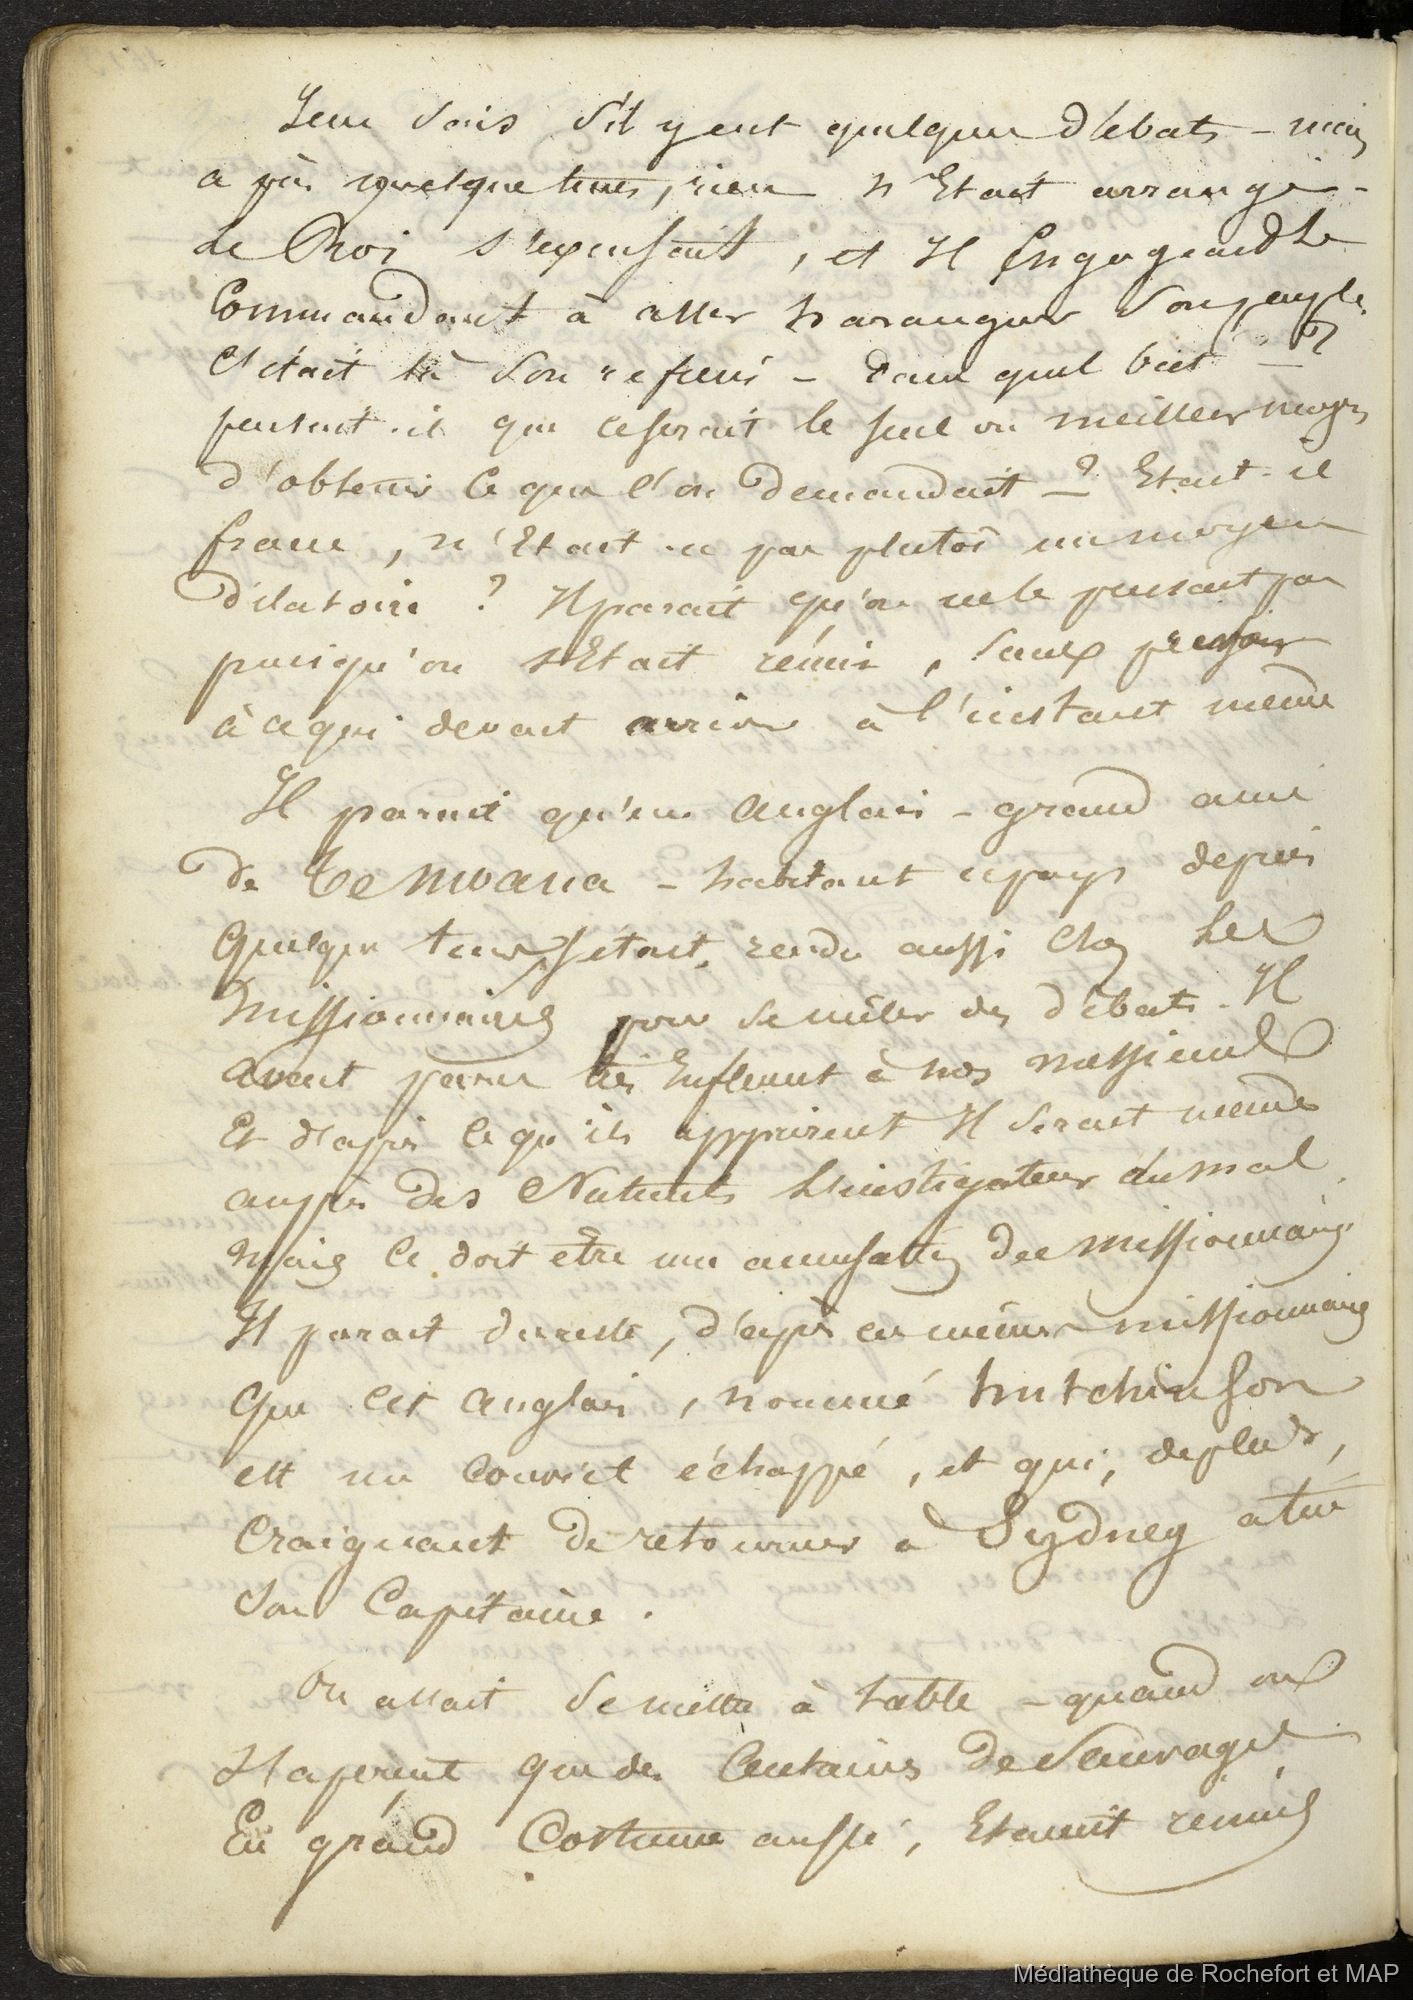 Je ne sais s'il y eut quelques débats - mais
après quelque tems, rien n'Etait arrangé -
Le Roi s'excusait, et Il Engageait le
Commandant à aller haranguer son peuple
C'était là son refrein - dans quel but -
pensait-il que ce serait le seul ou meilleur moyen
d'obtenir ce que l'on demandait - ? Etait-il
franc, n'Etait-ce pas plutôt un moyen
dilatoire ? Il parait qu'on ne le pensait pas
puisqu'on s'Etait réuni, sans penser
à ce qui devait arriver à l'instant même
Il parait qu'un anglais - grand ami
de Temoana - habitant ce pays depuis
quelque tems s'était rendu aussi chez les
missionnaires pour se mêler des débats. Il
avait paru très Influent à nos messieurs
Et d'après ce qu'ils apprirent Il serait même
auprès des Naturels l'instigateur du mal
mais ce doit être une accusation des missionnaires
Il parait du reste, d'après ces mêmes missionnaires
que cet anglais, nommé hutchinson
est un convict échappé, et qui, de plus,
craignant de retourner à Sydney a tué
son Capitaine.
On allait se mettre à table - quand on
s'aperçut que des centaines de Sauvages
En grand Costume aussi, Etaient réunis
Médiathèque de Rochefort et MAP